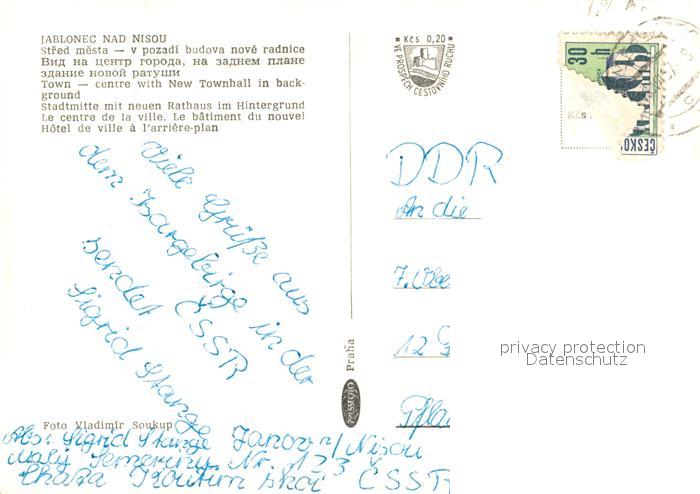 JABLONEC NAD NISOU
Střed města — v pozadí budova nové radnice
Вид на центр города, на заднем плане
здание новой ратуши
Town — centre with New Townhall in back-
ground
Stadtmitte mit neuen Rathaus im Hintergrund
Le centre de la ville. Le bâtiment du nouvel
Hôtel de ville à l'arrière-plan
Viele Grüße aus
dem Isargebirge in der
ČSSR
sendet
Sigrid Stange
Foto Vladimír Soukup
Abs: Sigrid Stange Janov n/Nisou
Malý Semerink Nr. 173
Chata ČSSR
PRESSFOTO Praha
Kčs 0,20
VE PROSPĚCH CESTOVNÍHO RUCHU
30 h
ČESKO
Kčs
DDR
An die
7. Obe
12 G
Pfla
privacy protection
Datenschutz